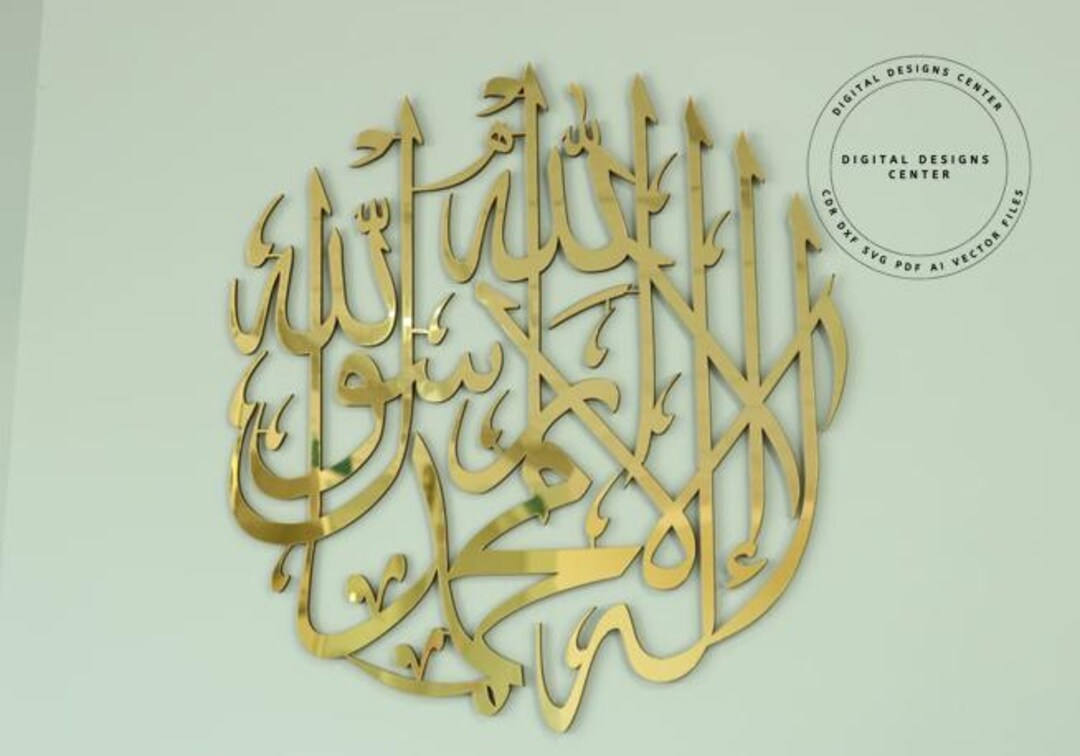 لا إله إلا الله
محمد رسول الله
DIGITAL DESIGNS CENTER
DIGITAL DESIGNS
CENTER
CDR DXF SVG PDF AI VECTOR FILES